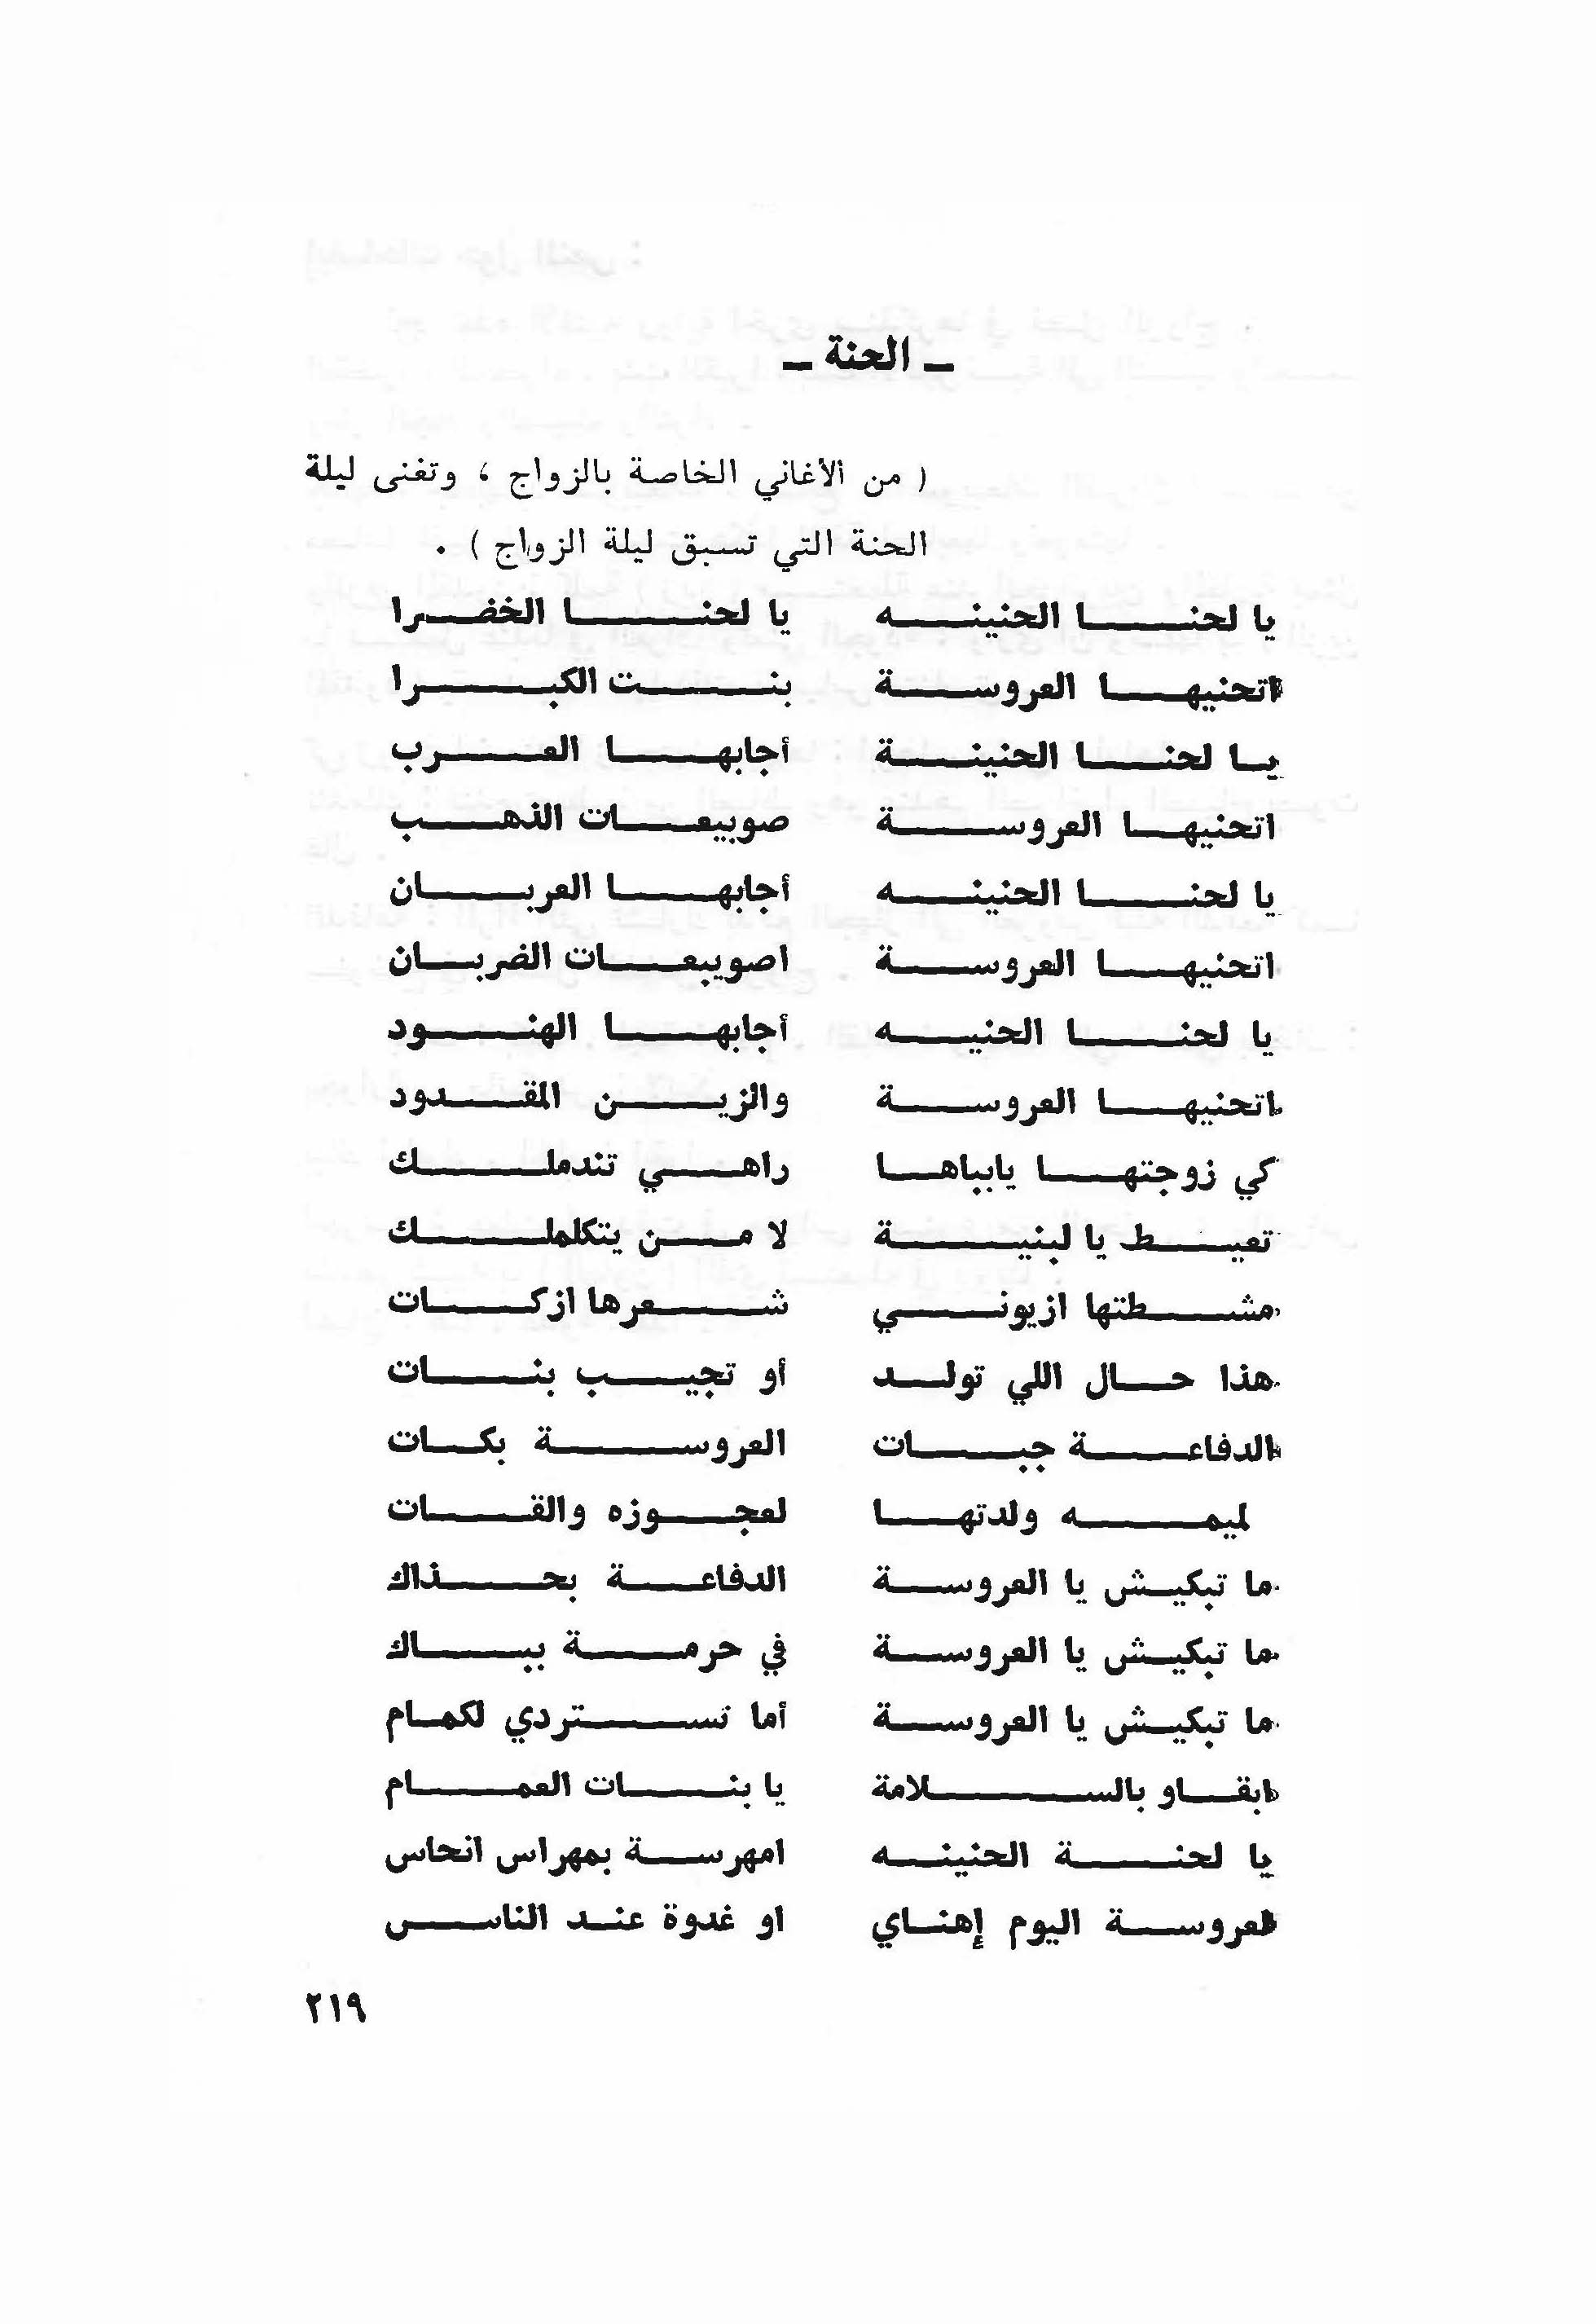 ـ الحنة ـ
( من الأغاني الخاصة بالزواج ، وتغنى ليلة
الحنة التي تسبق ليلة الزواج ) .
يا لحنا الحنينه يا لحنا الخضرا
اتحنيها العروسة بنت الكبرا
يا لحنا الحنينة أجابها العرب
اتحنيها العروسة صوبيعات الذهب
يا لحنا الحنينه أجابها العربان
اتحنيها العروسة اصويبعات الضربان
يا لحنا الحنيه أجابها الهنود
اتحنيها العروسة والزين المقدود
كي زوجتها يابباها راهي تندملك
تعيط يا لبنية لا من يتكلملك
مشطتها ازيوني شعرها ازكات
هذا حال اللي تولد أو تجيب بنات
الدفاعة جبات العروسة بكات
لميمه ولدتها لعجوزه والقات
ما تبكيش يا العروسة الدفاعة بحذاك
ما تبكيش يا العروسة في حرمة بباك
ما تبكيش يا العروسة أما تستردي لكمام
ابقاو بالسلامة يا بنات العمام
يا لحنة الحنينه امهرسة بمهراس انحاس
العروسة اليوم إهناي او غدوة عند الناس
٢١٩